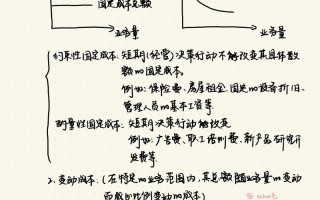 固定成本总额
业务量
业务量
约束性固定成本：短期(经营)决策行动不能改变其具体数
额的固定成本。
例如：保险费、房屋租金、固定的设备折旧、
管理人员的基本工资等
酌量性固定成本：短期决策行动能改变
例如：广告费、职工培训费、新产品研究开
发费等
2、变动成本：(在特定的业务范围内，其总额随业务量的变动
而成正比例变动的成本)